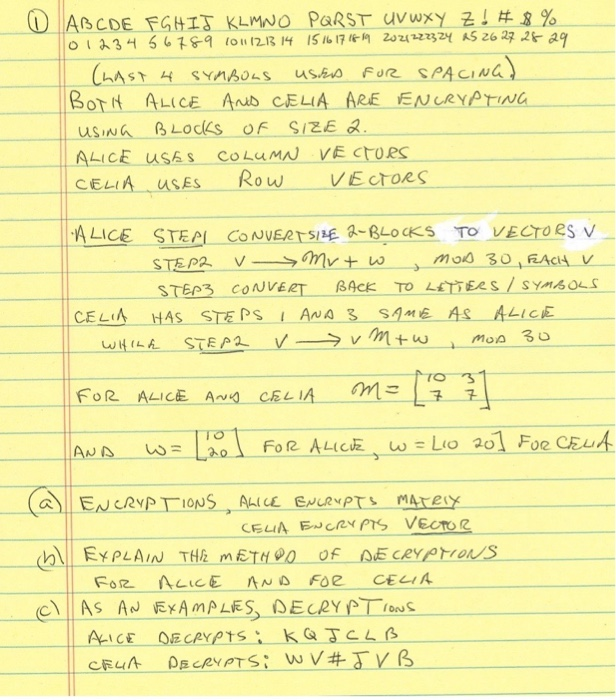 ① ABCDE FGHIJ KLMNO PQRST UVWXY Z ! # $ %
0 1 2 3 4 5 6 7 8 9 10 11 12 13 14 15 16 17 18 19 20 21 22 23 24 25 26 27 28 29
(LAST 4 SYMBOLS USED FOR SPACING)
BOTH ALICE AND CELIA ARE ENCRYPTING
USING BLOCKS OF SIZE 2.
ALICE USES COLUMN VECTORS
CELIA USES ROW VECTORS
ALICE STEP1 CONVERT SIZE 2-BLOCKS TO VECTORS V
STEP2 V → MV + W , MOD 30, EACH V
STEP3 CONVERT BACK TO LETTERS / SYMBOLS
CELIA HAS STEPS 1 AND 3 SAME AS ALICE
WHILE STEP2 V → V M + W , MOD 30
FOR ALICE AND CELIA M = [10 3
7 7]
AND W = [10
20] FOR ALICE, W = [10 20] FOR CELIA
(a) ENCRYPTIONS, ALICE ENCRYPTS MATRIX
CELIA ENCRYPTS VECTOR
(b) EXPLAIN THE METHOD OF DECRYPTIONS
FOR ALICE AND FOR CELIA
(c) AS AN EXAMPLES, DECRYPTIONS
ALICE DECRYPTS: KQJCLB
CELIA DECRYPTS: WV#JVB